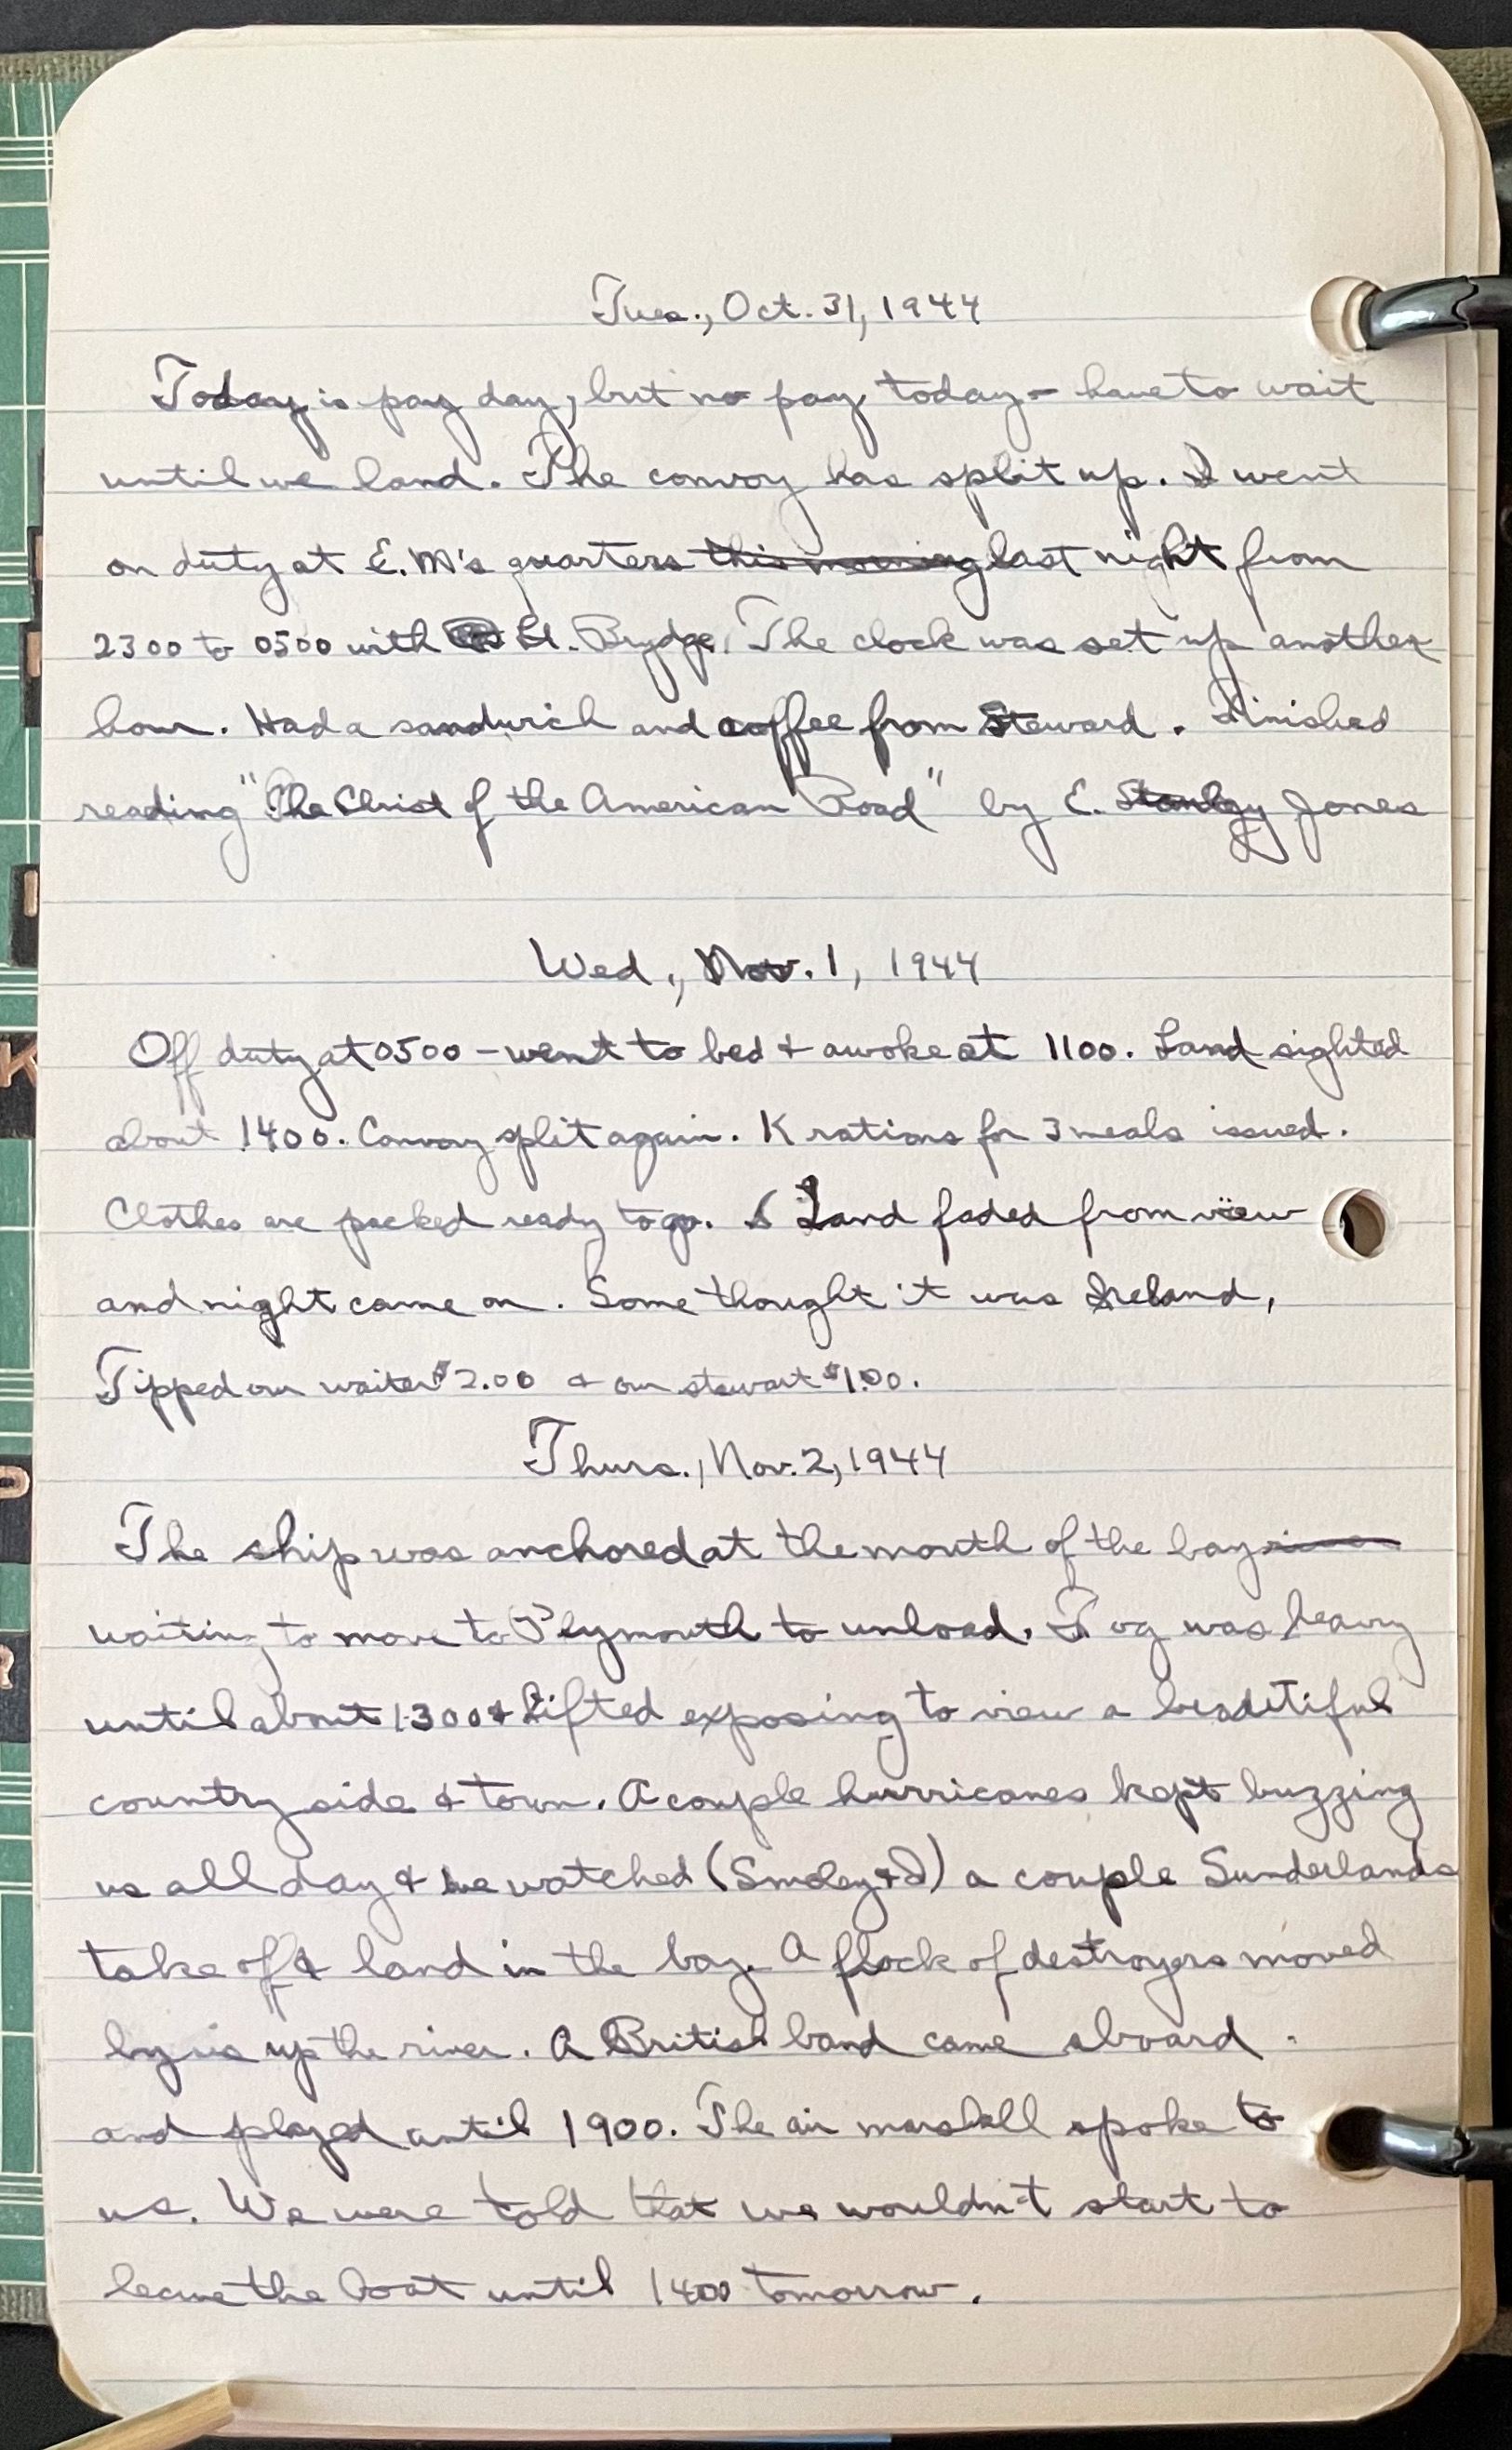 Tues., Oct. 31, 1944
Today is pay day, but no pay today - have to wait
until we land. The convoy has split up. I went
on duty at E.M's quarters this morning last night from
2300 to 0500 with Lt. Brydge. The clock was set up another
hour. Had a sandwich and coffee from Steward. Finished
reading "The Christ of the American Road" by E. Stanley Jones
Wed., Nov. 1, 1944
Off duty at 0500 - went to bed & awoke at 1100. Land sighted
about 1400. Convoy split again. K rations for 3 meals issued.
Clothes are packed ready to go. Land faded from view
and night came on. Some thought it was Ireland,
Tipped our waiter $2.00 & our stewart $1.00.
Thurs., Nov. 2, 1944
The ship was anchored at the mouth of the bay
waiting to move to Plymouth to unload. Fog was heavy
until about 1300 & lifted exposing to view a beautiful
country side & town. A couple hurricanes kept buzzing
us all day & we watched (Smoley & I) a couple Sunderlands
take off & land in the bay. A flock of destroyers moved
by us up the river. A British band came aboard
and played until 1900. The air marshall spoke to
us. We were told that we wouldn't start to
leave the boat until 1400 tomorrow.